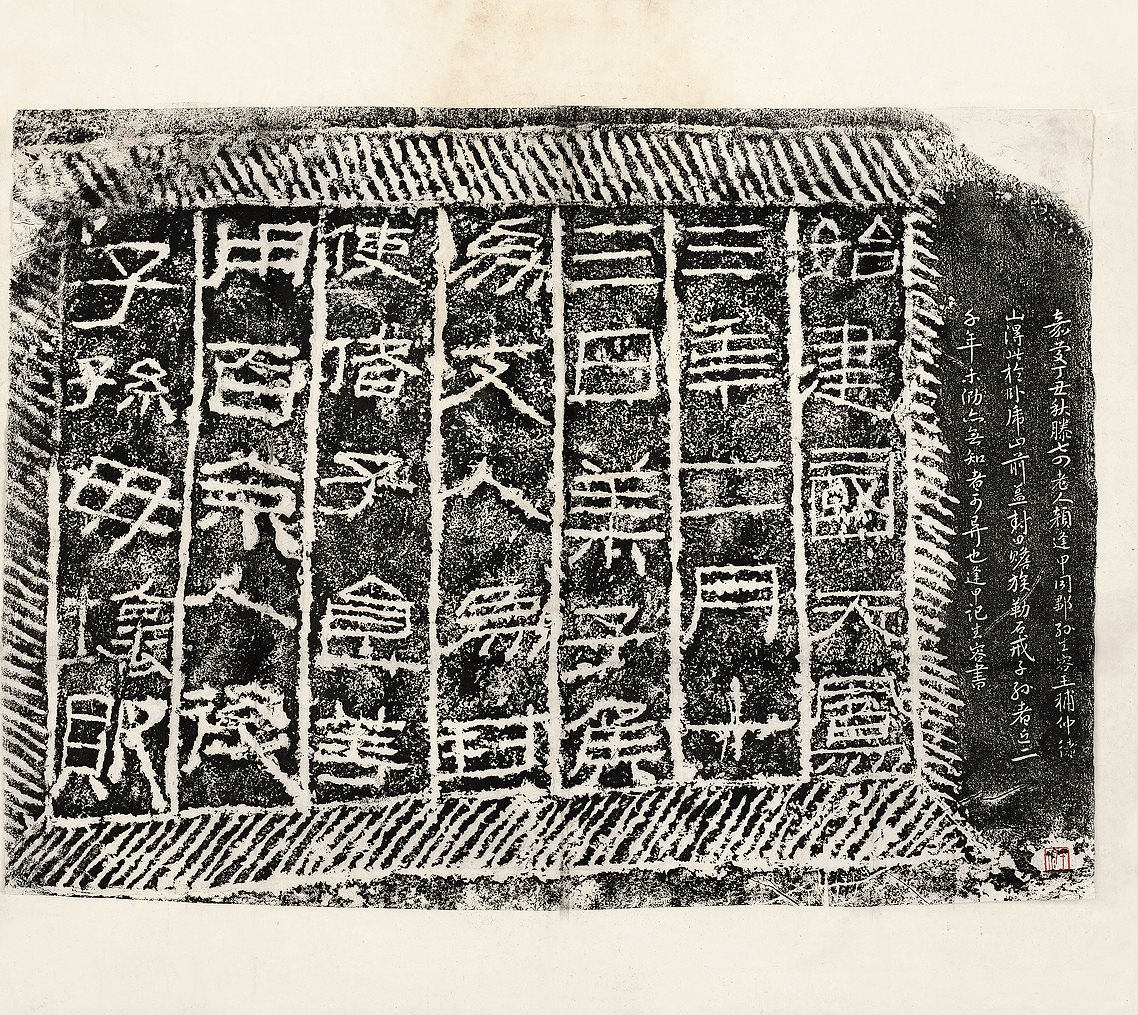 嘉慶丁丑秋滕七四老人顏逢甲同鄒孫生容王補仲緒
山得此於臥虎山前蓋封田贍族勒石戒子孫者近二
千年未泐亦無知者可異也逢甲記生容書
始建國天鳳
三年二月十
三日萊子侯
為支人為封
使偖子食等
用百余人後
子孫毋壞敗